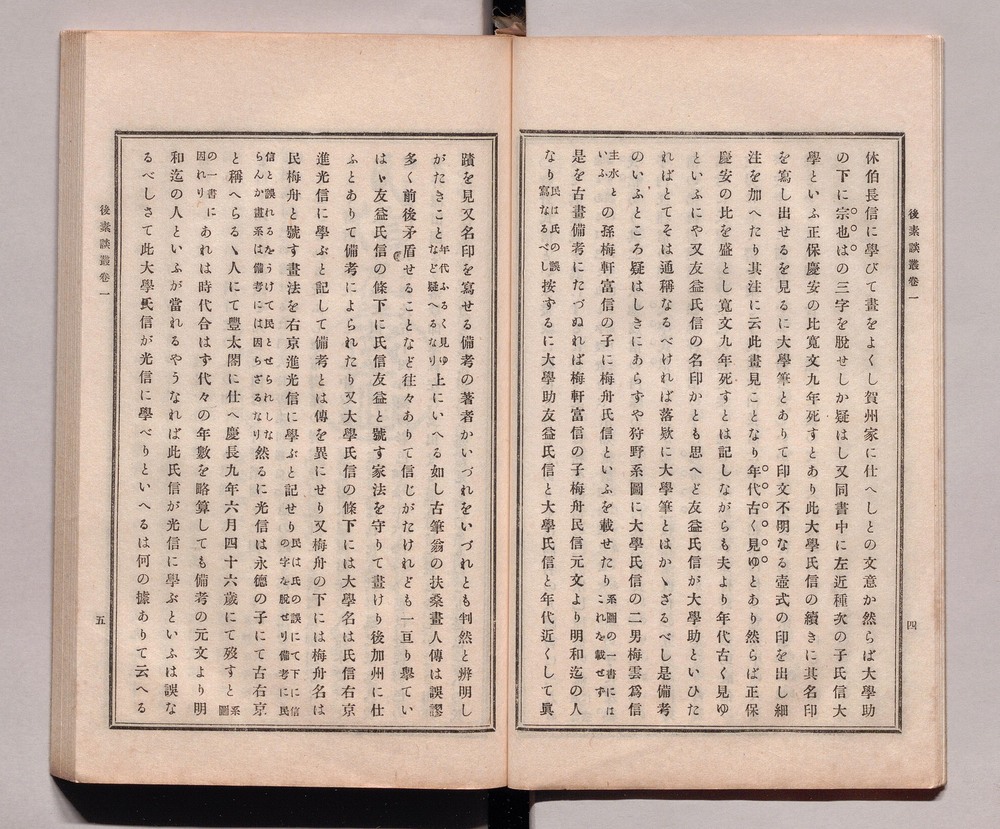 後素談叢卷一
四
休伯長信に學びて畫をよくし賀州家に仕へしとの文意か然らば大學助
の下に宗也はの三字を脫せしか疑はし又同書中に左近種次の子氏信大
學といふ正保慶安の比寬文九年死すとあり此大學氏信の續きに其名印
を寫し出せるを見るに大學筆とありて印文不明なる壺式の印を出し細
注を加へたり其注に云此畫見ことなり年代古く見ゆとあり然らば正保
慶安の比を盛とし寬文九年死すとは記しながらも夫より年代古く見ゆ
といふにや又友益氏信の名印かとも思へど友益氏信が大學助といひた
ればとてそは通稱なるべければ落欵に大學筆とはかゝざるべし是備考
のいふところ疑はしきにあらずや狩野系圖に大學氏信の二男梅雲爲信
主水といふの孫梅軒富信の子に梅舟氏信といふを載せたり系圖の一書にはこれを載せず
是を古畫備考にたづぬれば梅軒富信の子梅舟民信元文より明和迄の人
なり民は氏の誤寫なるべし按ずるに大學助友益氏信と大學氏信と年代近くして眞
蹟を見又名印を寫せる備考の著者かいづれをいづれとも判然と辨明し
がたきこと年代ふるく見ゆなど疑へるなり上にいへる如し古筆翁の扶桑畫人傳は誤謬
多く前後矛盾せることなど往々ありて信じがたけれども一亘り擧てい
はゞ友益氏信の條下に氏信友益と號す家法を守りて畫けり後加州に仕
ふとありて備考によられたり又大學氏信の條下には大學名は氏信右京
進光信に學ぶと記して備考とは傳を異にせり又梅舟の下には梅舟名は
民梅舟と號す畫法を右京進光信に學ぶと記せり民は氏の誤にて下に信の字を脫せり備考に民
信と誤れるをうけて民とせられしならんか畫系は備考には因らざるなり然るに光信は永德の子にて古右京
と稱へらるゝ人にて豐太閤に仕へ慶長九年六月四十六歲にて歿すと系圖
の一書に因れりあれは時代合はず代々の年數を略算しても備考の元文より明
和迄の人といふが當れるやうなれば此氏信が光信に學ぶといふは誤な
るべしさて此大學氏信が光信に學べりといへるは何の據ありて云へる
後素談叢卷一
五